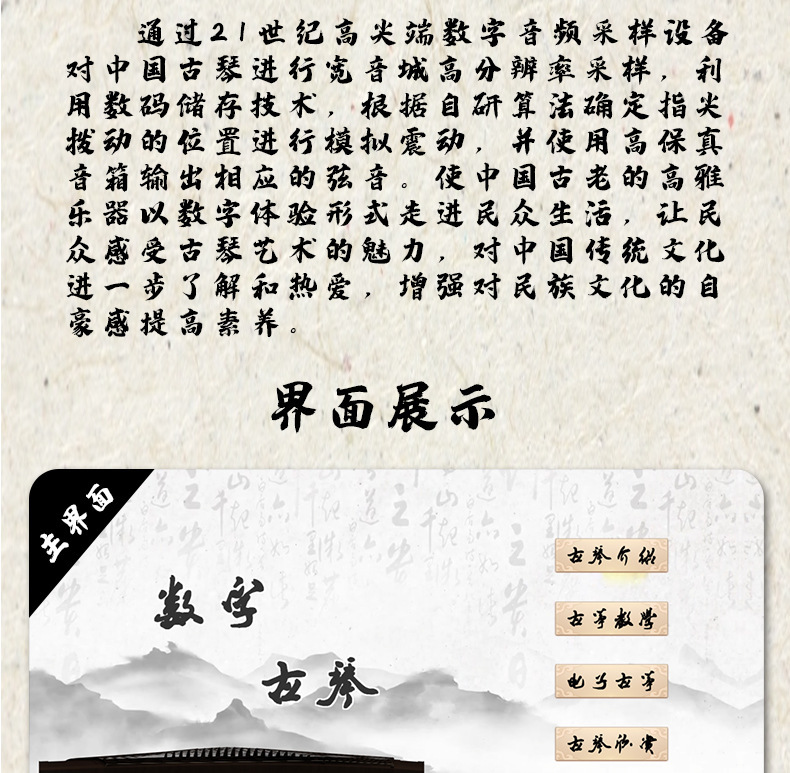 通过21世纪高尖端数字音频采样设备
对中国古琴进行宽音城高分辨率采样，利
用数码储存技术，根据自研算法确定指尖
拨动的位置进行模拟震动，并使用高保真
音箱输出相应的弦音。使中国古老的高雅
乐器以数字体验形式走进民众生活，让民
众感受古琴艺术的魅力，对中国传统文化
进一步了解和热爱，增强对民族文化的自
豪感提高素养。
界面展示
主界面
数字
古琴
古琴介绍
古筝教学
电子古筝
古琴欣赏